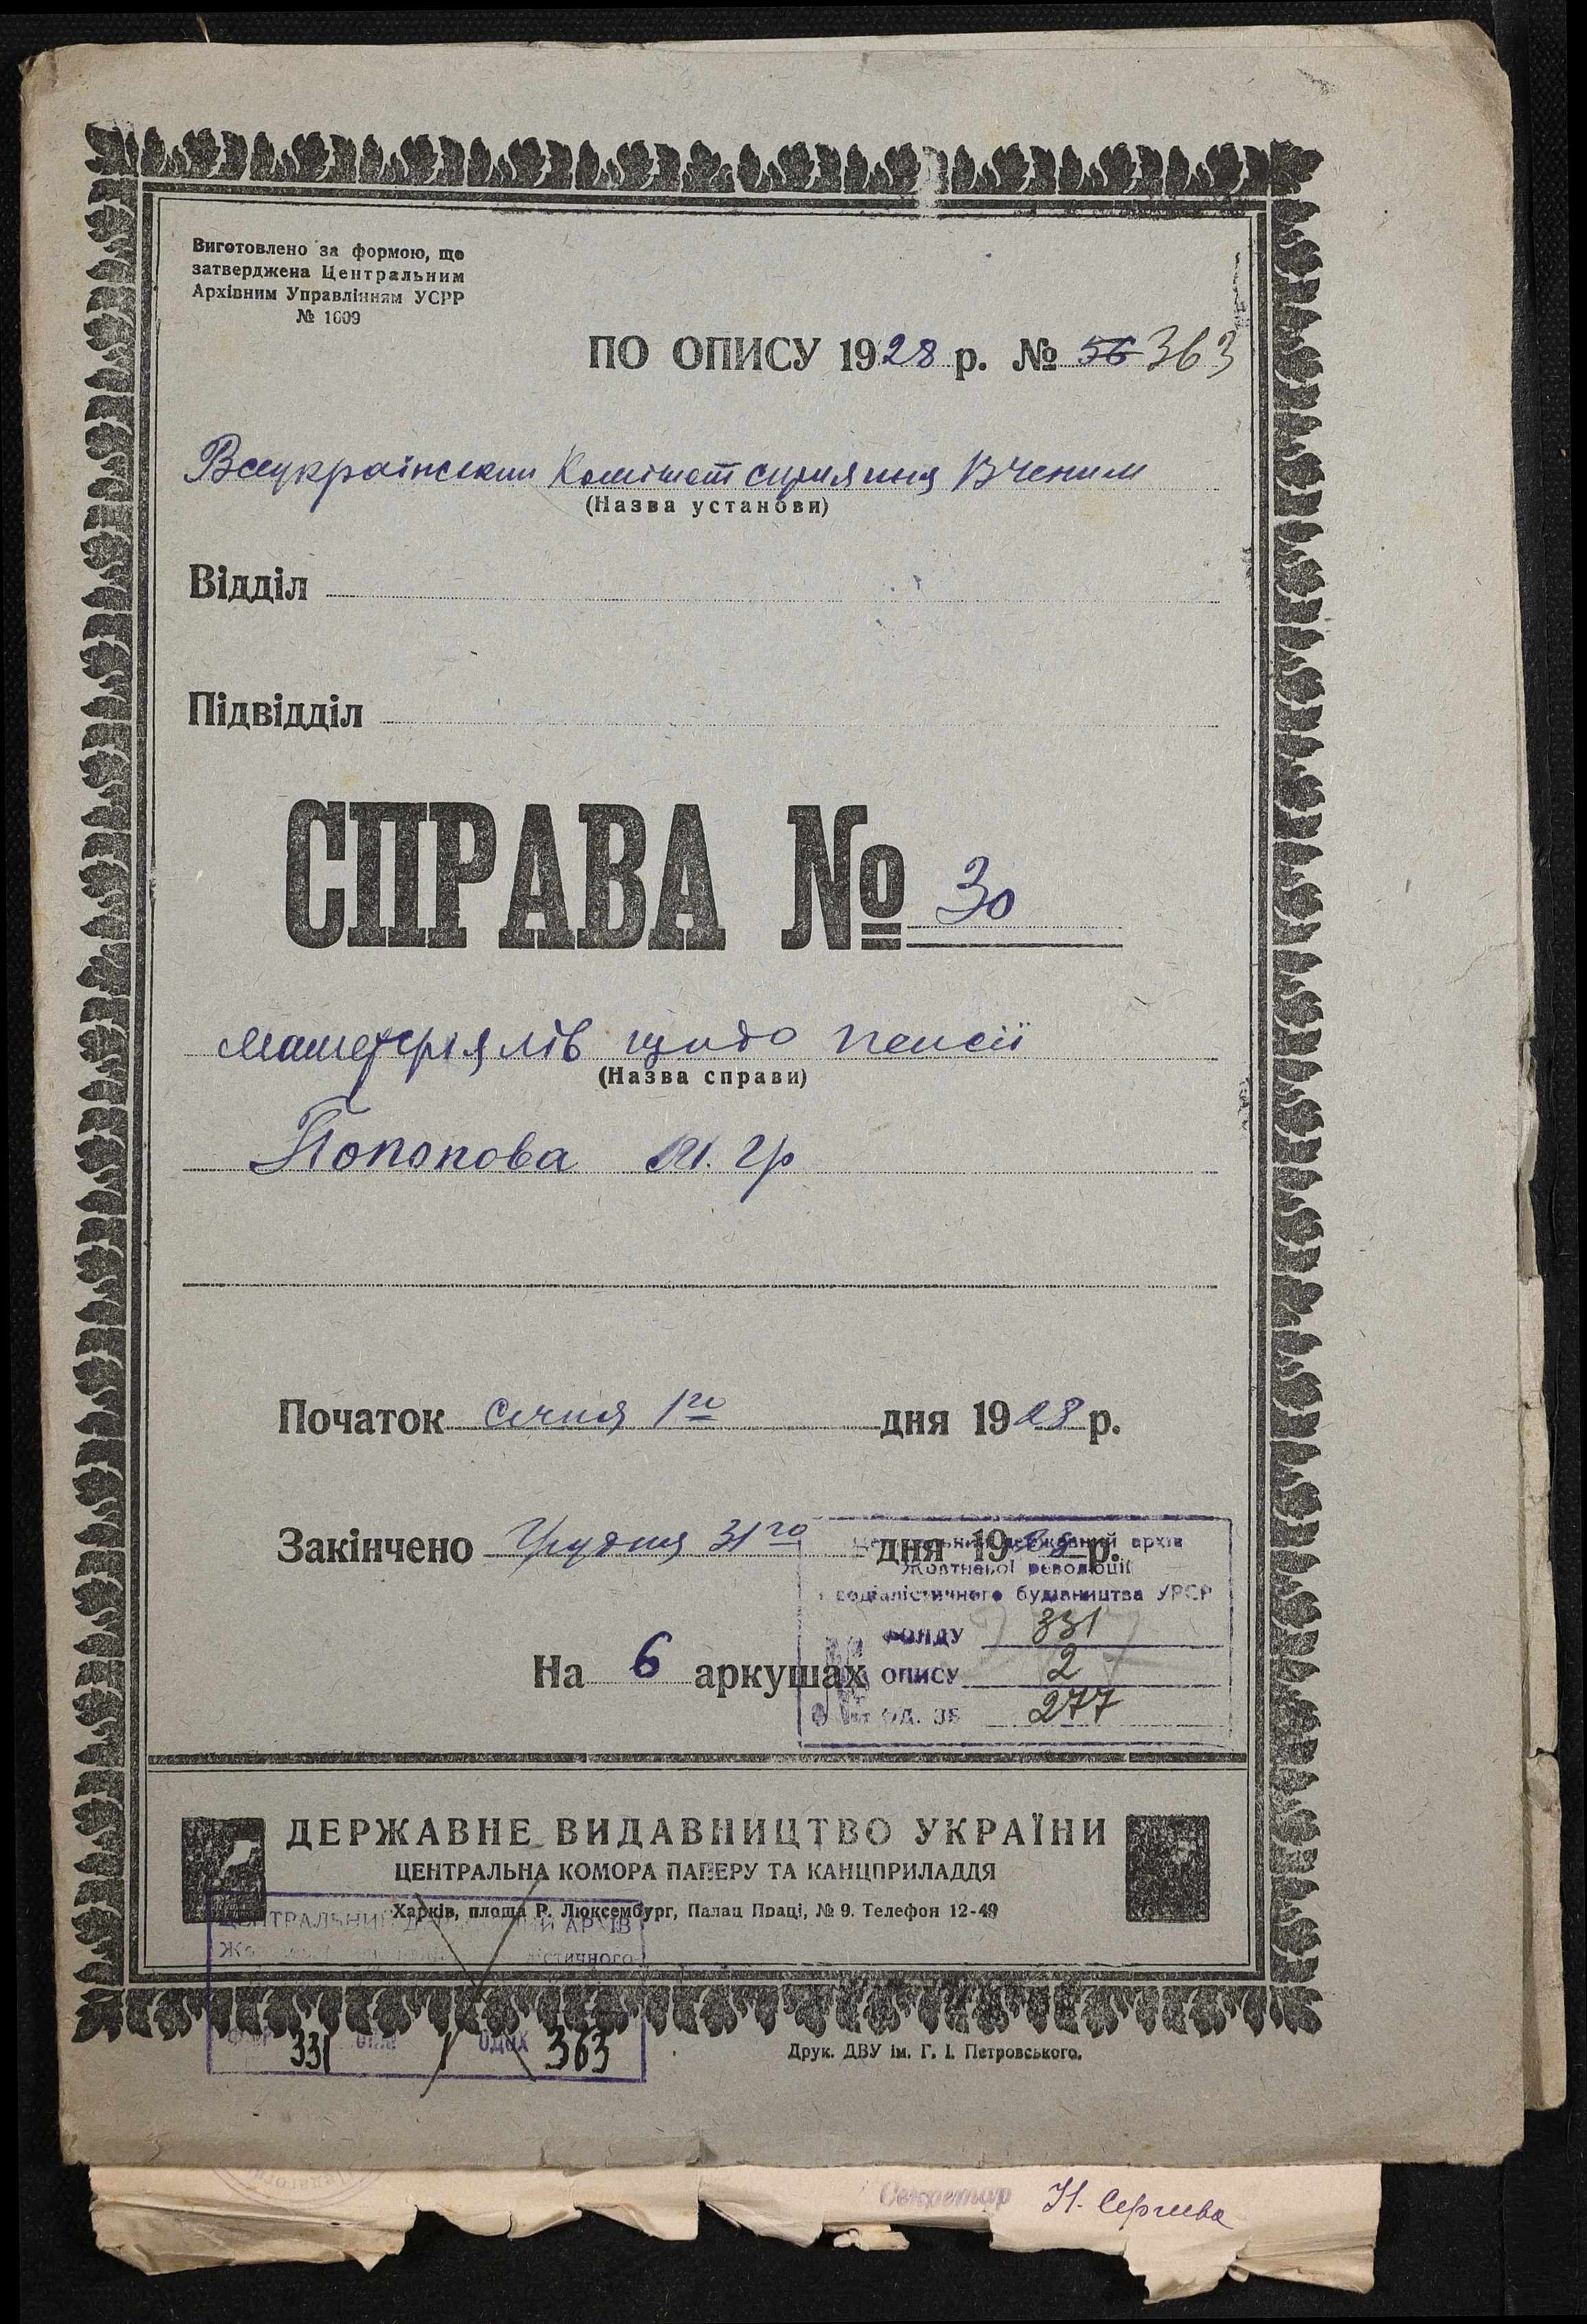 Виготовлено за формою, що
затверджена Центральним
Архівним Управлінням УСРР
№ 1609
ПО ОПИСУ 1928 р. № 56 363
Всеукраїнский Комітет сприяння Вченим
(Назва установи)
Відділ
Підвідділ
СПРАВА № 30
матеріялів щодо пенсії
(Назва справи)
Попопова М. Гр
Початок січня 1го дня 1928 р.
Закінчено Грудня 31го дня 1928 р.
Центральний державний архів
Жовтневої революції
і соціалістичного будівництва УРСР
ФОНДУ 331
На 6 аркушах
ОПИСУ 2
ОД. ЗБ 277
ДЕРЖАВНЕ ВИДАВНИЦТВО УКРАЇНИ
ЦЕНТРАЛЬНА КОМОРА ПАПЕРУ ТА КАНЦПРИЛАДДЯ
Харків, площа Р. Люксембург, Палац Праці, № 9. Телефон 12-49
ЦЕНТРАЛЬНИЙ ДЕРЖАВНИЙ АРХІВ
331 1 ОДЗХ 363
Друк. ДВУ ім. Г. І. Петровського.
Секретар Н. Сергиева